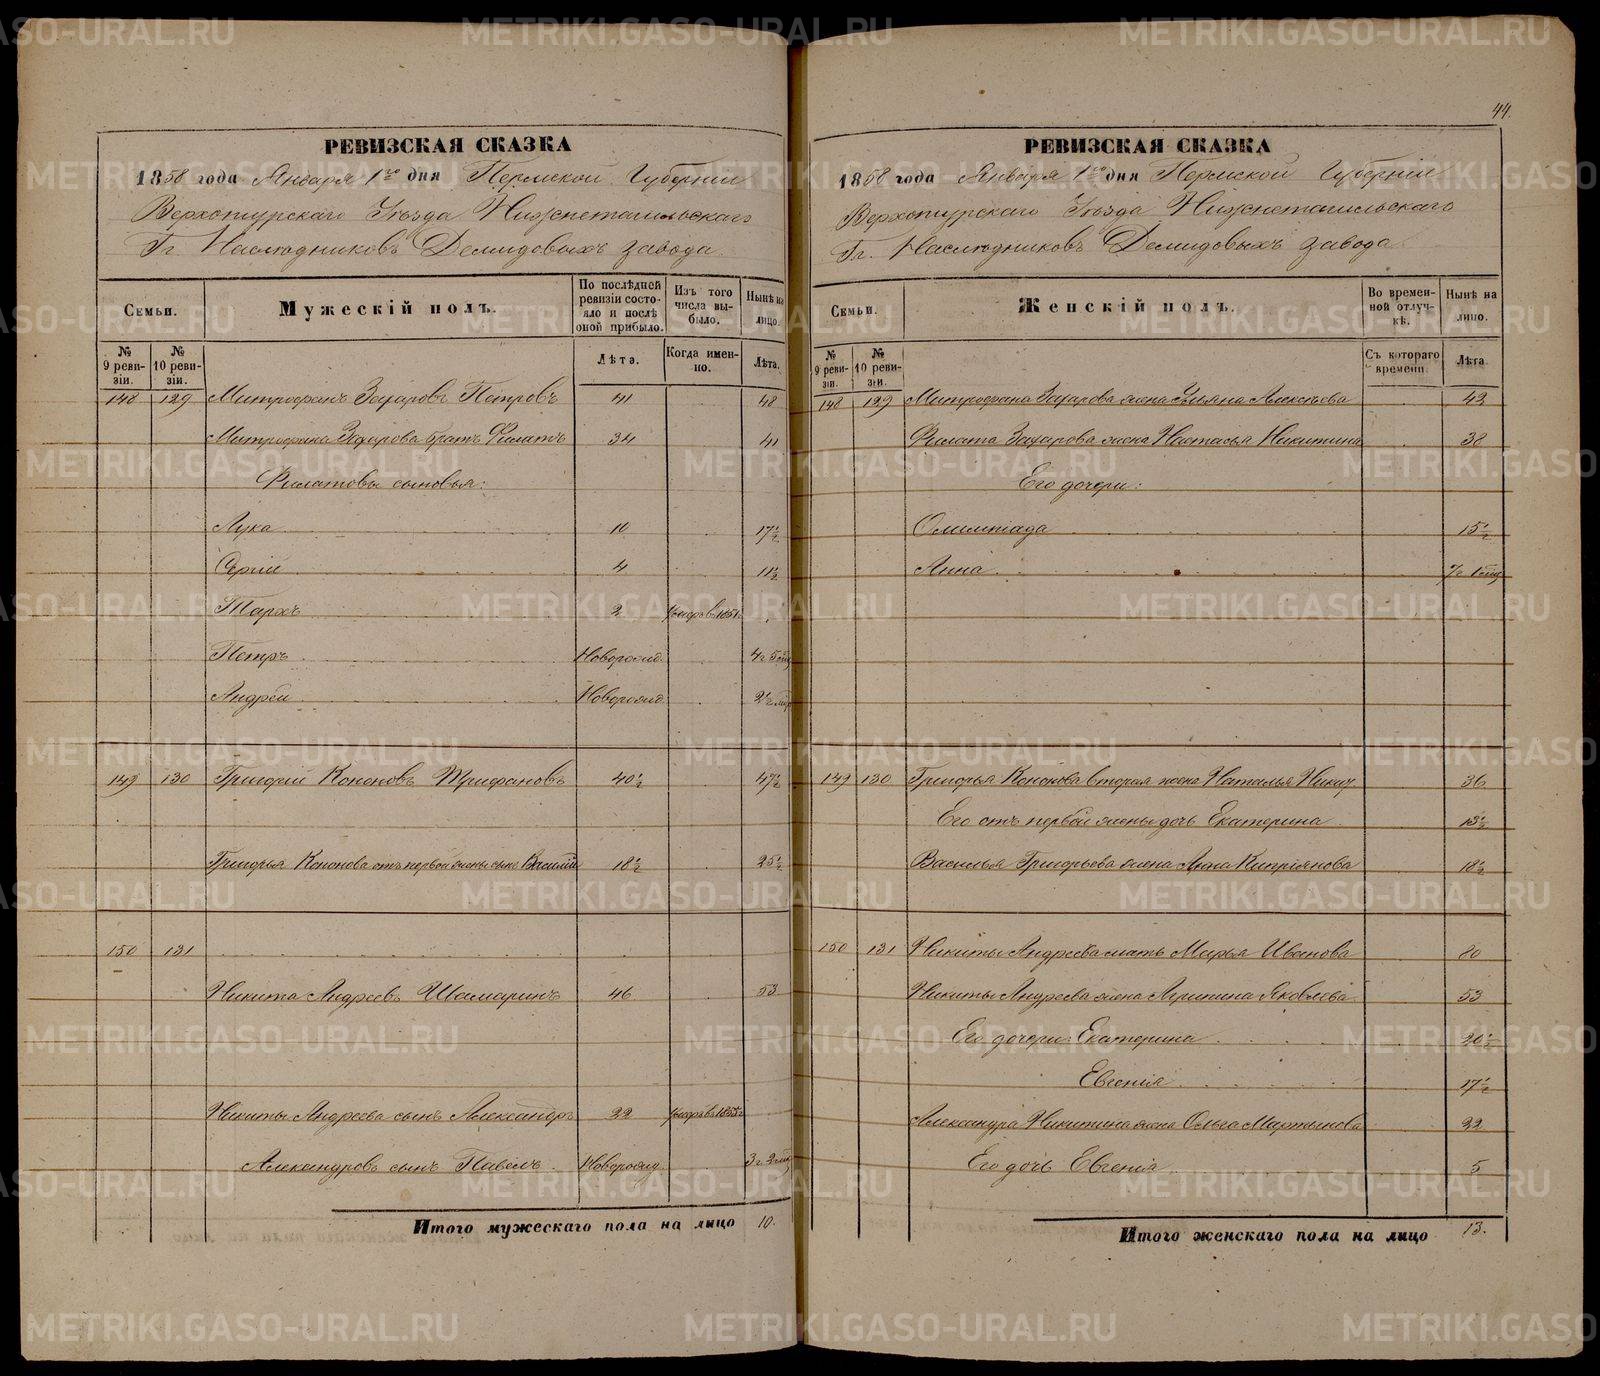 44.
РЕВИЗСКАЯ СКАЗКА
1858 года Января 1го дня Пермской Губерніи
Верхотурскаго Уѣзда Нижнетагильскаго
Гг. Наслѣдниковъ Демидовыхъ завода.
Семьи. Мужескій полъ. По послѣдней ревизіи состояло и послѣ оной прибыло. Изъ того числа выбыло. Нынѣ на лицо.
№ 9 ревизіи. № 10 ревизіи. Лѣта. Когда именно. Лѣта.
148 129 Митрофанъ Захаровъ Петровъ 41 48
Митрофана Захарова братъ Филатъ 34 41
Филатовы сыновья:
Лука 10 17½
Сергій 4 11½
Тархъ 2
Петръ Новорожд. 4 г. 5 мѣс.
Андрей Новорожд. 2½ мѣс.
149 130 Григорій Кононовъ Трифановъ 40½ 47½
Григорья Кононова отъ первой жены сынъ Василій 18½ 25½
150 131
Никита Андреевъ Шамаринъ 46 53
Никиты Андреева сынъ Александръ 22 умеръ въ 1855 г.
Александровъ сынъ Павелъ Новорожд. 3 г. 2 мѣс.
Итого мужескаго пола на лицо 10.
РЕВИЗСКАЯ СКАЗКА
1858 года Января 1го дня Пермской Губерніи
Верхотурскаго Уѣзда Нижнетагильскаго
Гг. Наслѣдниковъ Демидовыхъ завода
Семьи. Женскій полъ. Во временной отлучкѣ. Нынѣ на лицо.
№ 9 ревизіи. № 10 ревизіи. Съ котораго времени. Лѣта.
148 129 Митрофана Захарова жена Ульяна Алексѣева 42
Филата Захарова жена Настасья Никитина 38
Его дочери:
Олимпіада 15½
Анна
149 130 Григорья Кононова вторая жена Наталья 36
Его отъ первой жены дочь Екатерина 13½
Василья Григорьева жена Анна Кипріянова 18½
150 131 Никиты Андреева мать Марья Иванова 80
Никиты Андреева жена Агрипина Яковлева 53
Его дочери: Екатерина 20½
Евгенія 17½
Александра Никитина жена Ольга Мартынова 22
Его дочь Евгенія 5
Итого женскаго пола на лицо 13.
METRIKI.GASO-URAL.RU